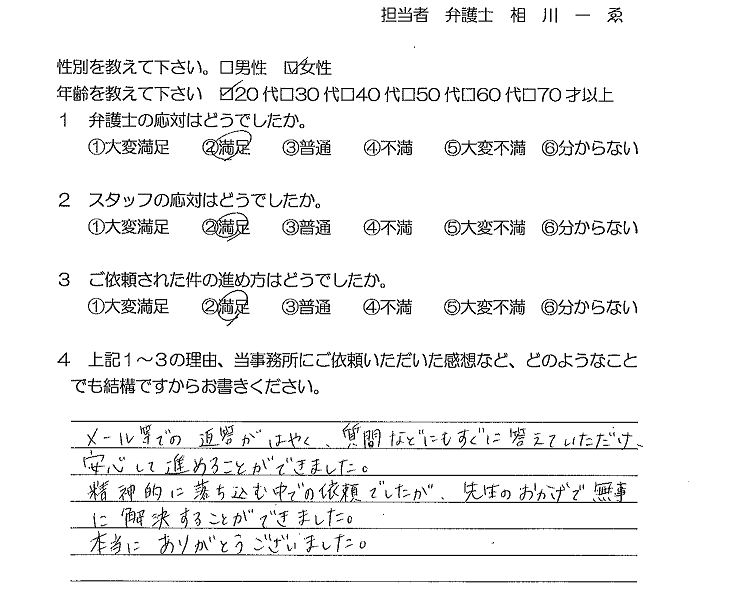 担当者 弁護士 相 川 一 ゑ
性別を教えて下さい。□男性 ☑女性
年齢を教えて下さい ☑20代□30代□40代□50代□60代□70才以上
1 弁護士の応対はどうでしたか。
①大変満足 ②満足 ③普通 ④不満 ⑤大変不満 ⑥分からない
2 スタッフの応対はどうでしたか。
①大変満足 ②満足 ③普通 ④不満 ⑤大変不満 ⑥分からない
3 ご依頼された件の進め方はどうでしたか。
①大変満足 ②満足 ③普通 ④不満 ⑤大変不満 ⑥分からない
4 上記1～3の理由、当事務所にご依頼いただいた感想など、どのようなこと
でも結構ですからお書きください。
メール等での返答がはやく、質問などにもすぐに答えていただけ、
安心して進めることができました。
精神的に落ち込む中での依頼でしたが、先生のおかげで無事
に解決することができました。
本当にありがとうございました。